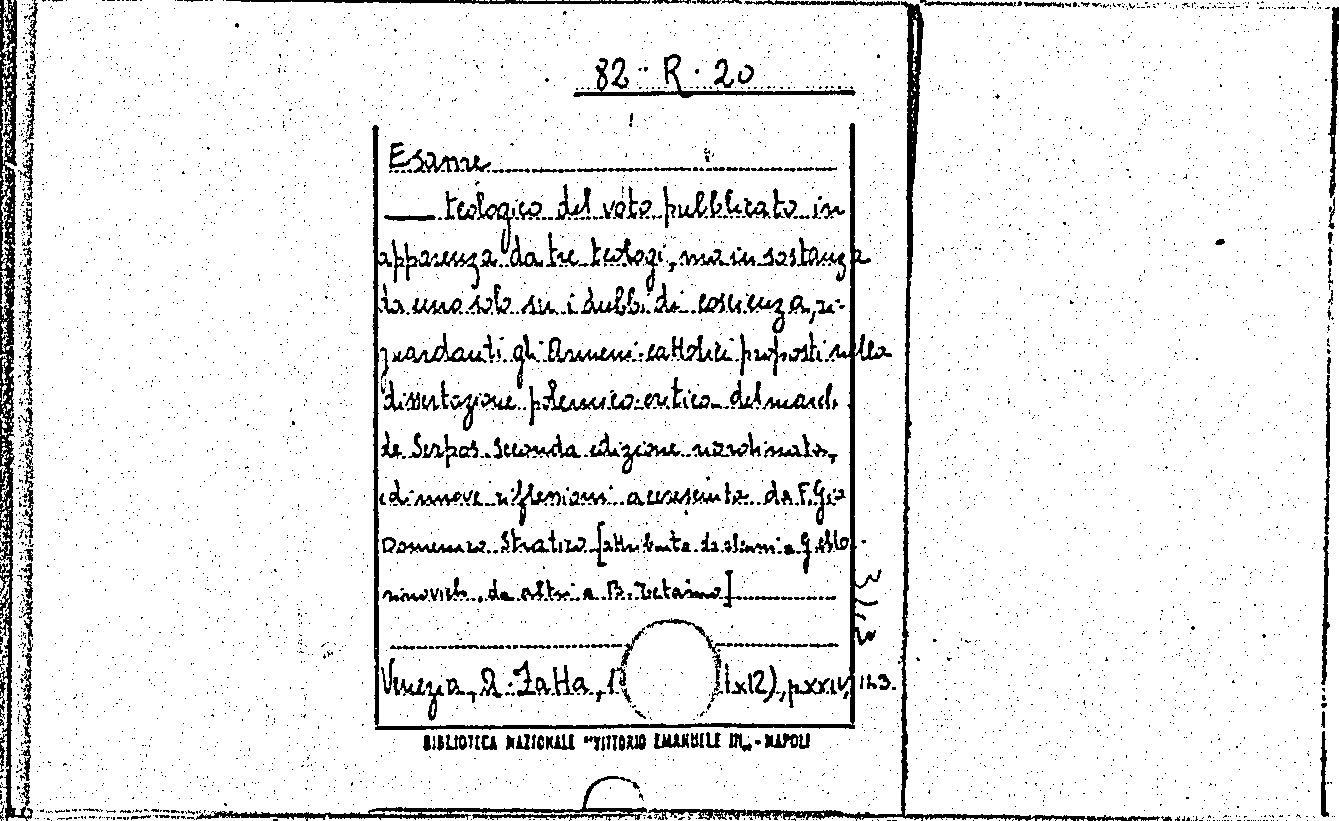 82 · R · 20
Esame
teologico del voto pubblicato in
apparenza da tre teologi, ma in sostanza
da uno solo su i dubbi di coscienza, ri-
guardanti gli Armeni cattolici proposti nella
dissertazione polemico-critica del march.
de Serpos. Seconda edizione riordinata,
e di nuove riflessioni accresciuta da F. Gio
Domenico Stratico [attribuita da alcuni a G.
da altri a B.
Venezia, A. Zatta, 1 (x12), p. XXIV, 113.
BIBLIOTECA NAZIONALE "VITTORIO EMANUELE III„ - NAPOLI